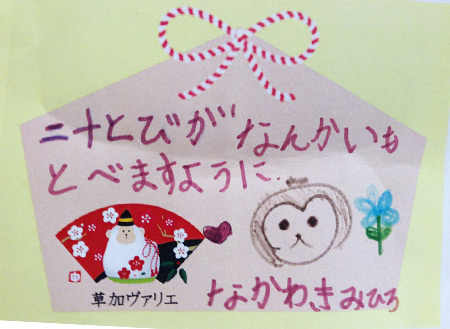 二十とびが なんかいも
とべますように
申
草加ヴァリエ
なかわきみひろ